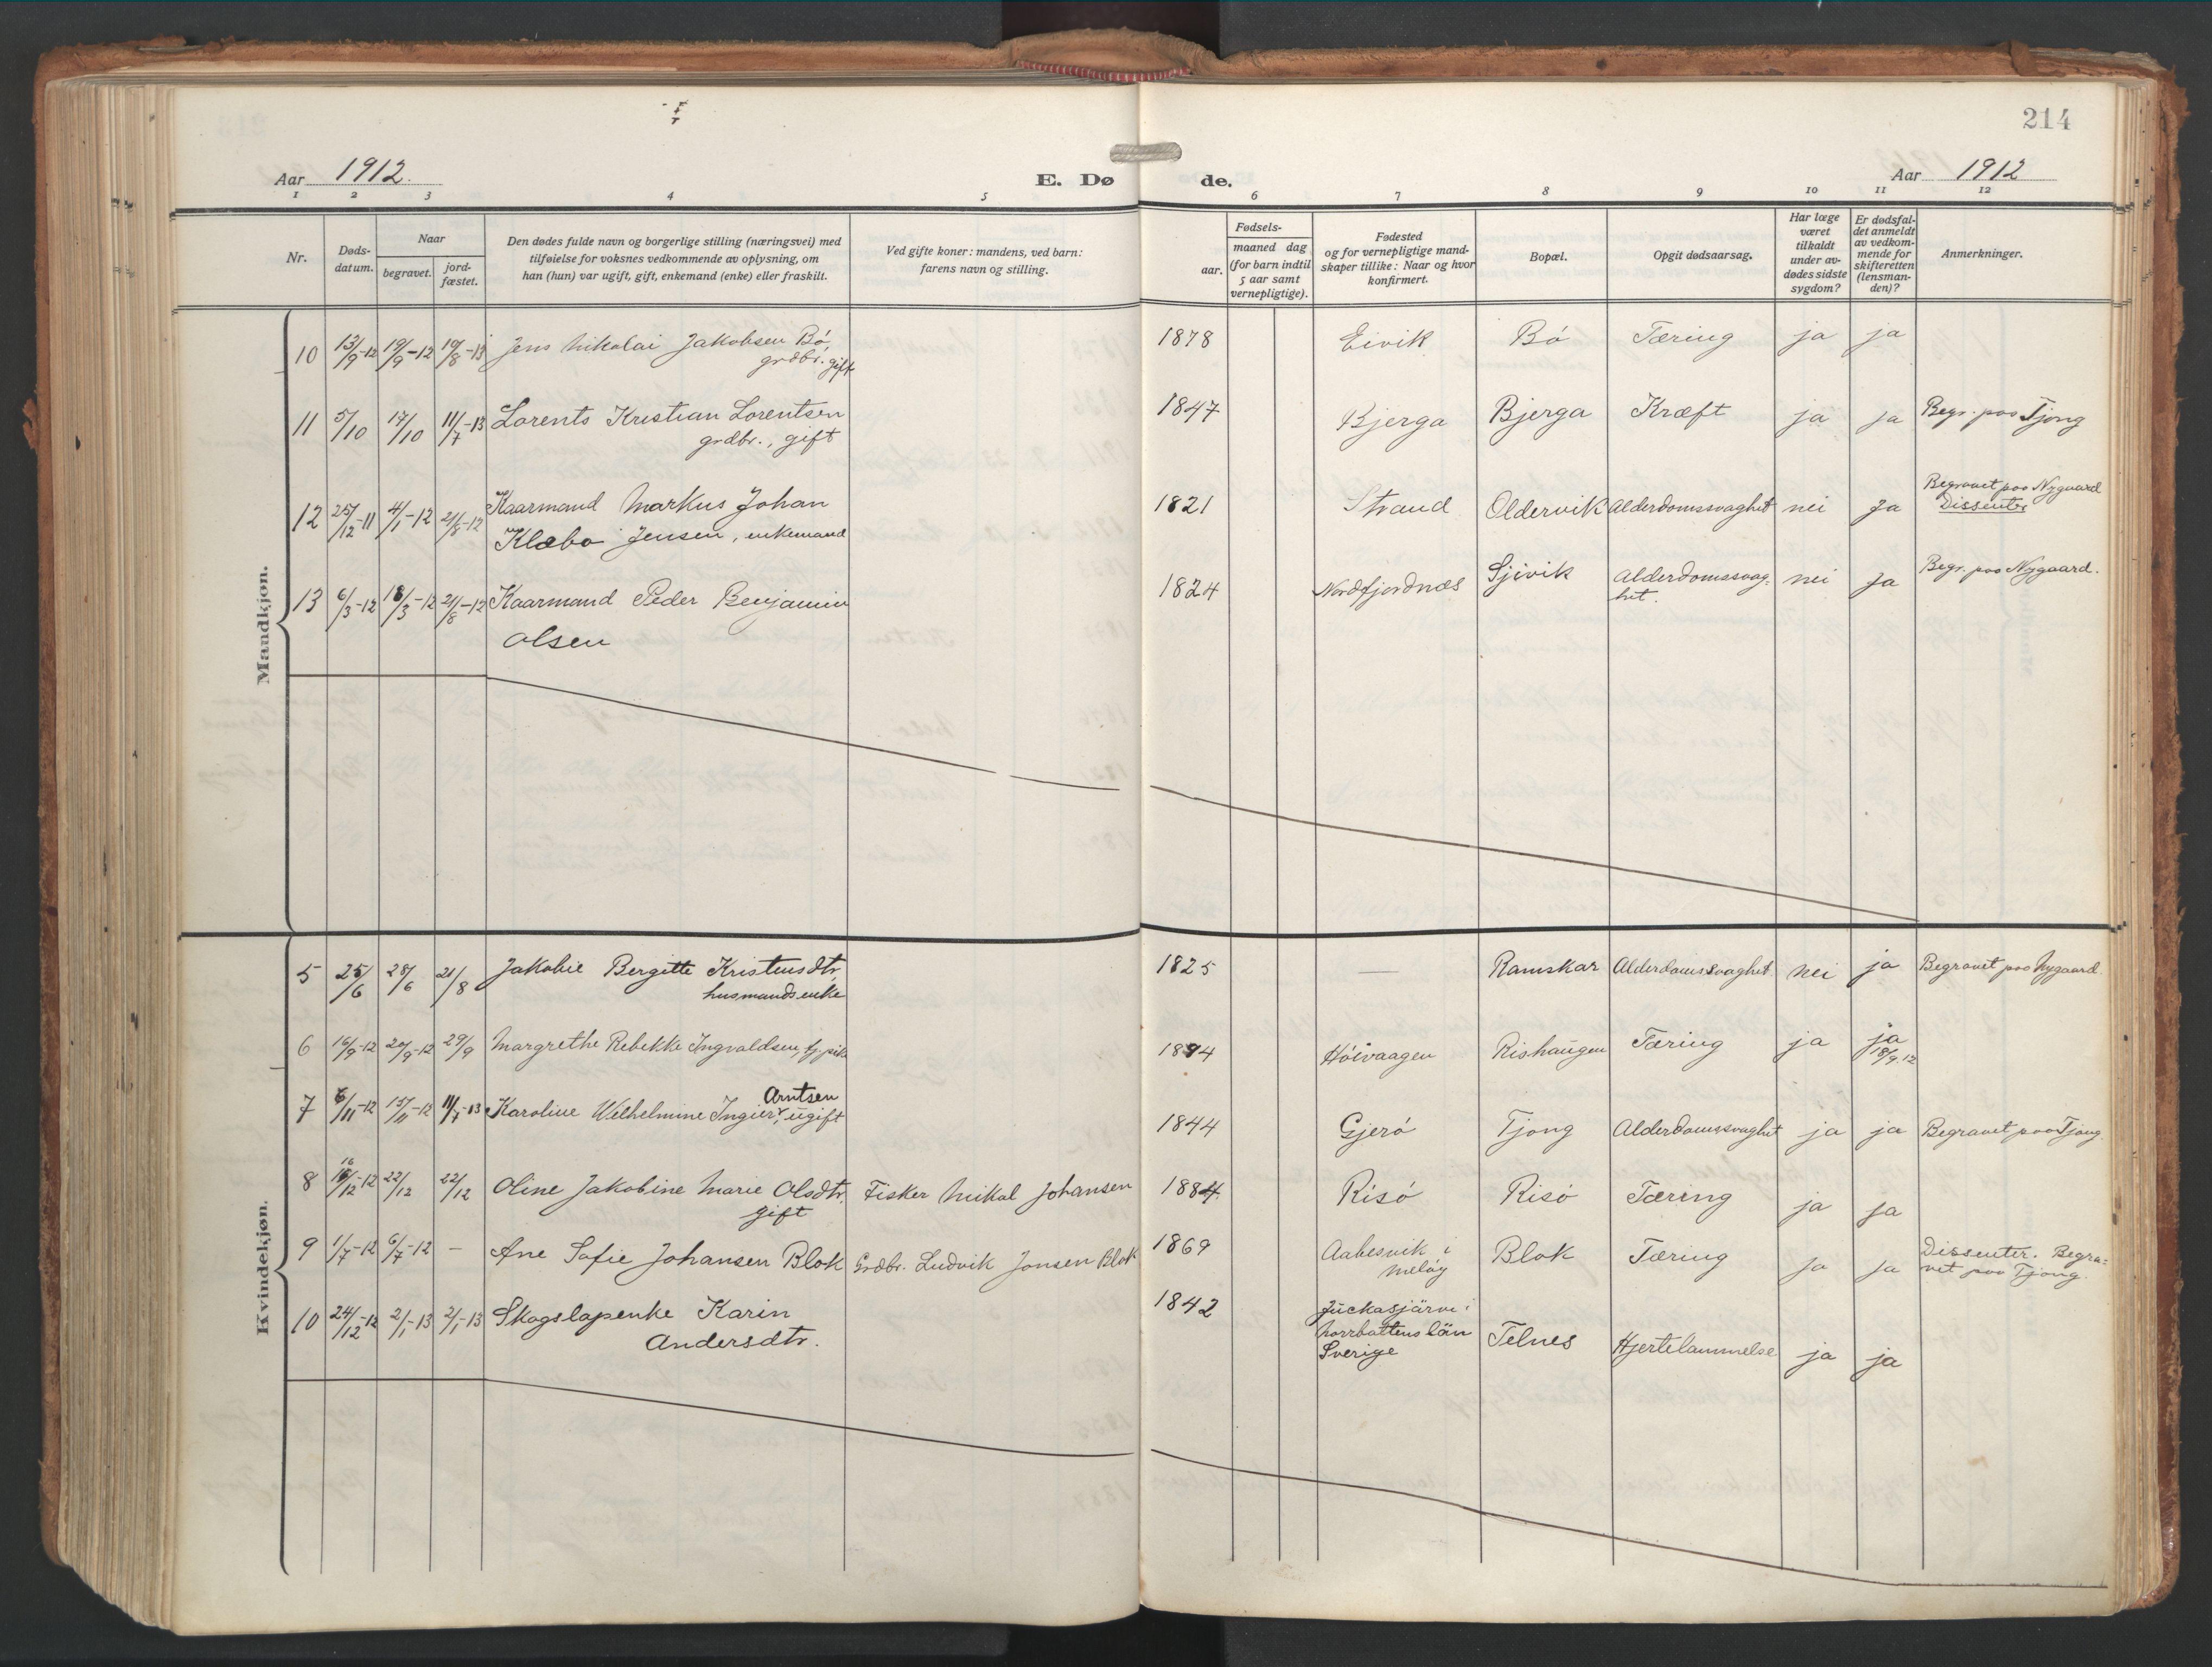 214
Aar 1912.
E. Døde.
Aar 1912
1 2 3 4 5 6 7 8 9 10 11 12
Nr.
Døds-
datum.
Naar
begravet.
jord-
fæstet.
Den dødes fulde navn og borgerlige stilling (næringsvei) med
tilføielse for voksnes vedkommende av oplysning, om
han (hun) var ugift, gift, enkemand (enke) eller fraskilt.
Ved gifte koner: mandens, ved barn:
farens navn og stilling.
Fødsels-
aar.
maaned dag
(for barn indtil
5 aar samt
vernepligtige).
Fødested
og for vernepligtige mand-
skaper tillike: Naar og hvor
konfirmert.
Bopæl.
Opgit dødsaarsag.
Har læge
været
tilkaldt
under av-
dødes sidste
sygdom?
Er dødsfal-
det anmeldt
av vedkom-
mende for
skifteretten
(lensman-
den)?
Anmerkninger.
Mandkjøn.
10 13/9-12 19/9-12 19/8-13 Jens Nikolai Jakobsen Bø, 1878 Eivik Bø Tæring ja ja
grdbr. gift
11 5/10 17/10 11/7-13 Lorents Kristian Lorentsen 1847 Bjerga Bjerga Kræft ja ja Begr. paa Tjong
grdbr., gift
12 25/12-11 4/1-12 21/8-12 Kaarmand Markus Johan 1821 Strand Oldervik Alderdomssvaghet nei Ja Begravet paa Nygaard
Klæbo Jensen, enkemand Dissenter
13 6/3-12 18/3-12 21/8-12 Kaarmand Peder Benjamin 1824 Nordfjordnæs Sjivik Alderdomssvag- nei Ja Begr. paa Nygaard.
Olsen het.
Kvindekjøn.
5 25/6 28/6 21/8 Jakobie Bergitte Kristensdtr, 1825 — Ramskar Alderdomssvaghet nei ja Begravet paa Nygaard
husmandsenke
6 16/9-12 20/9-12 29/9 Margrethe Rebekke Ingvaldsen, 1894 Høivaagen Rishaugen Tæring ja ja
18/9.12
Arntsen
7 6/11-12 15/11-12 11/7-13 Karoline Wilhelmine Ingier, ugift 1844 Gjerø Tjong Alderdomssvaghet ja ja Begravet paa Tjong
8 16/12-12 22/12 22/12 Oline Jakobine Marie Olsdtr. Fisker Mikal Johansen 1884 Risø Risø Tæring ja ja
gift
9 1/7-12 6/7-12 — Ane Sofie Johansen Blok Grdbr. Ludvik Jonsen Blok 1869 Aabesvik i Blok Tæring ja ja Dissenter. Begra-
Meløy vet paa Tjong.
10 24/12-12 2/1-13 2/1-13 Skogslapenke Karin 1842 Juckasjärvi i Telnes Hjertelammelse ja ja
Andersdtr. Norrbottens län
Sverige